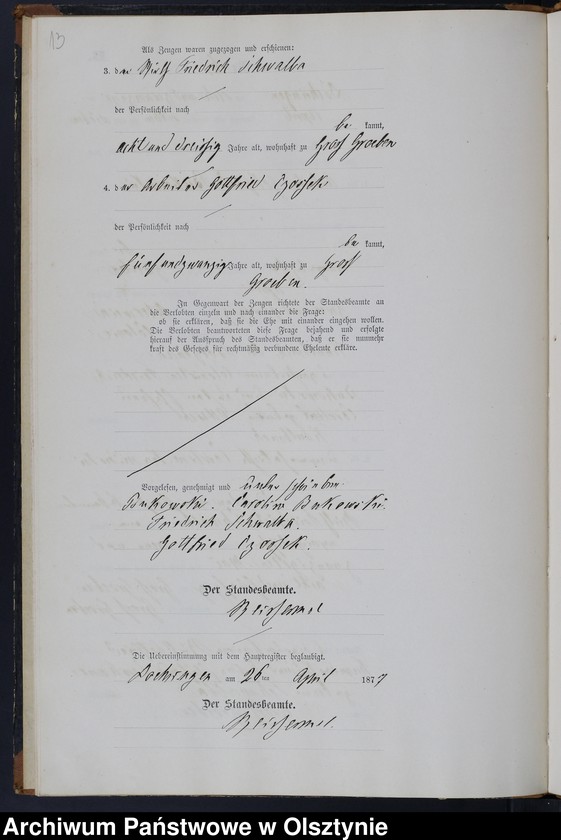 13
Als Zeugen waren zugezogen und erschienen:
3. der Wirth Friedrich Schwalba
der Persönlichkeit nach
be kannt,
acht und dreißig Jahre alt, wohnhaft zu Groß Groeben
4. der Arbeiter Gottfried Czossek
der Persönlichkeit nach
be kannt,
fünf und zwanzig Jahre alt, wohnhaft zu Groß
Groeben.
In Gegenwart der Zeugen richtete der Standesbeamte an
die Verlobten einzeln und nach einander die Frage:
ob sie erklären, daß sie die Ehe mit einander eingehen wollen.
Die Verlobten beantworteten diese Frage bejahend und erfolgte
hierauf der Ausspruch des Standesbeamten, daß er sie nunmehr
kraft des Gesetzes für rechtmäßig verbundene Eheleute erkläre.
Vorgelesen, genehmigt und unterschrieben.
Bukowski. Caroline Bukowski.
Friedrich Schwalba.
Gottfried Czossek.
Der Standesbeamte.
Die Uebereinstimmung mit dem Hauptregister beglaubigt.
Doehringen am 26 ten April 1877
Der Standesbeamte.
Archiwum Państwowe w Olsztynie